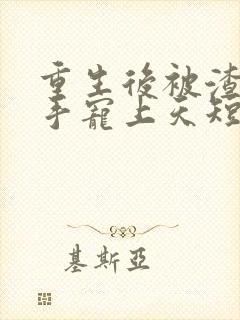 重生後被渣
手寵上天短
基斯亞